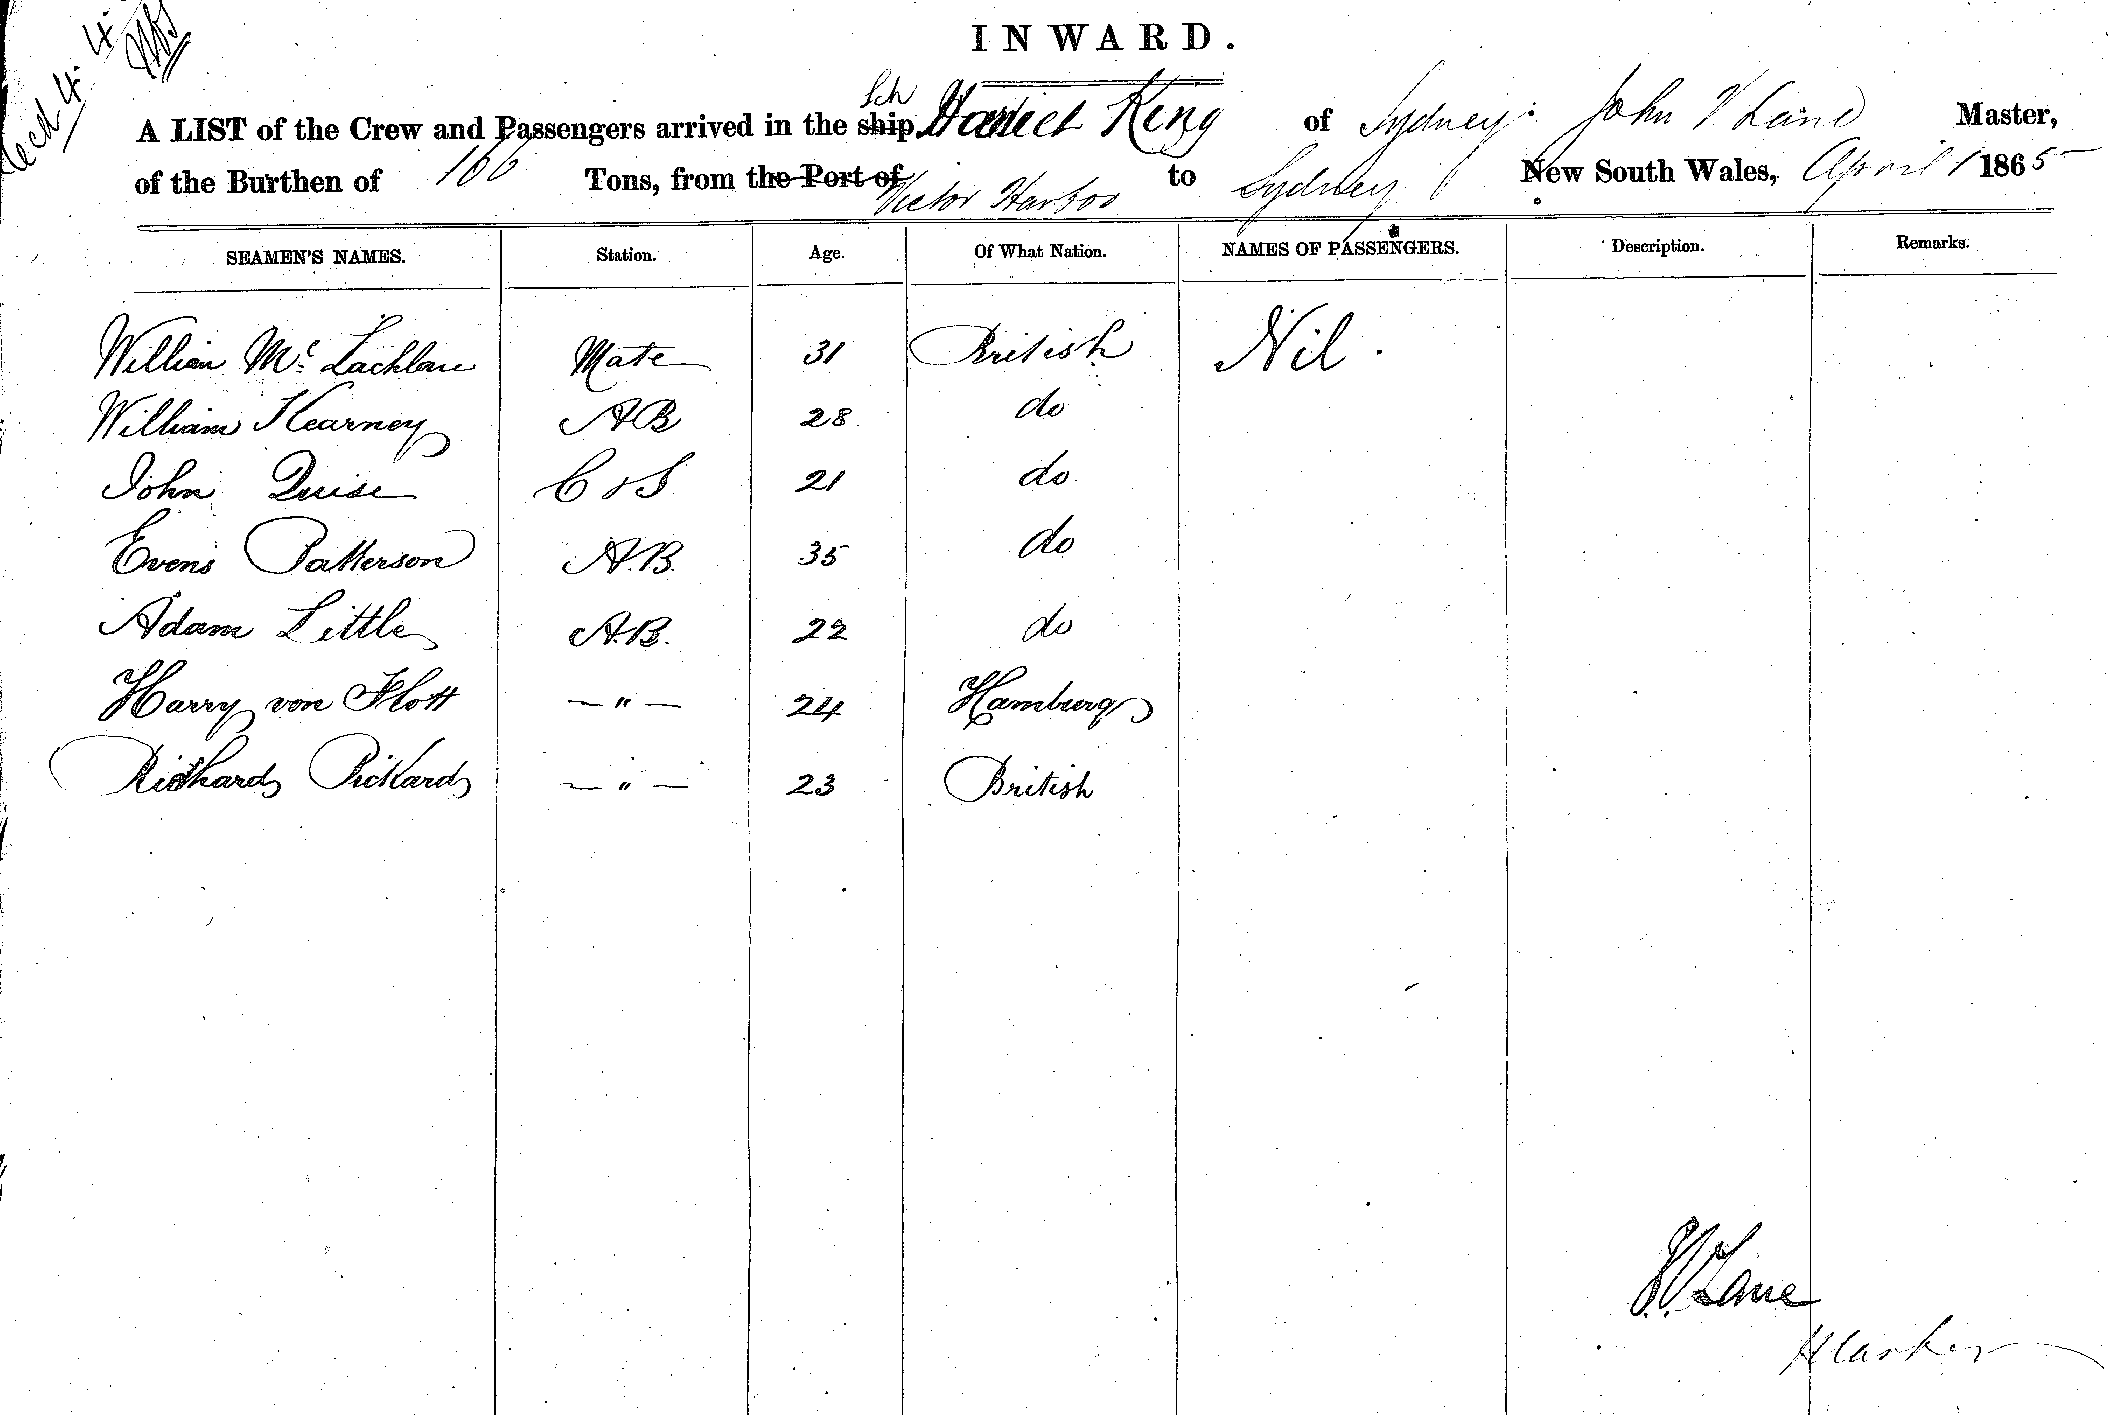 Recd 4. 4.
INWARD.
Sch
A LIST of the Crew and Passengers arrived in the ship Harriet King of Sydney. John V Lane Master,
of the Burthen of 166 Tons, from the Port of Victor Harbor to Sydney New South Wales, April 1 1865
SEAMEN'S NAMES. Station. Age. Of What Nation. NAMES OF PASSENGERS. Description. Remarks.
William Mc. Lachlan Mate 31 British Nil.
William Kearney AB 28 do
John Quise C & S 21 do
Evens Patterson A.B. 35 do
Adam Little A.B. 22 do
Harry von Flott — " — 24 Hamburg
Richard Pickard — " — 23 British
J.V. Lane